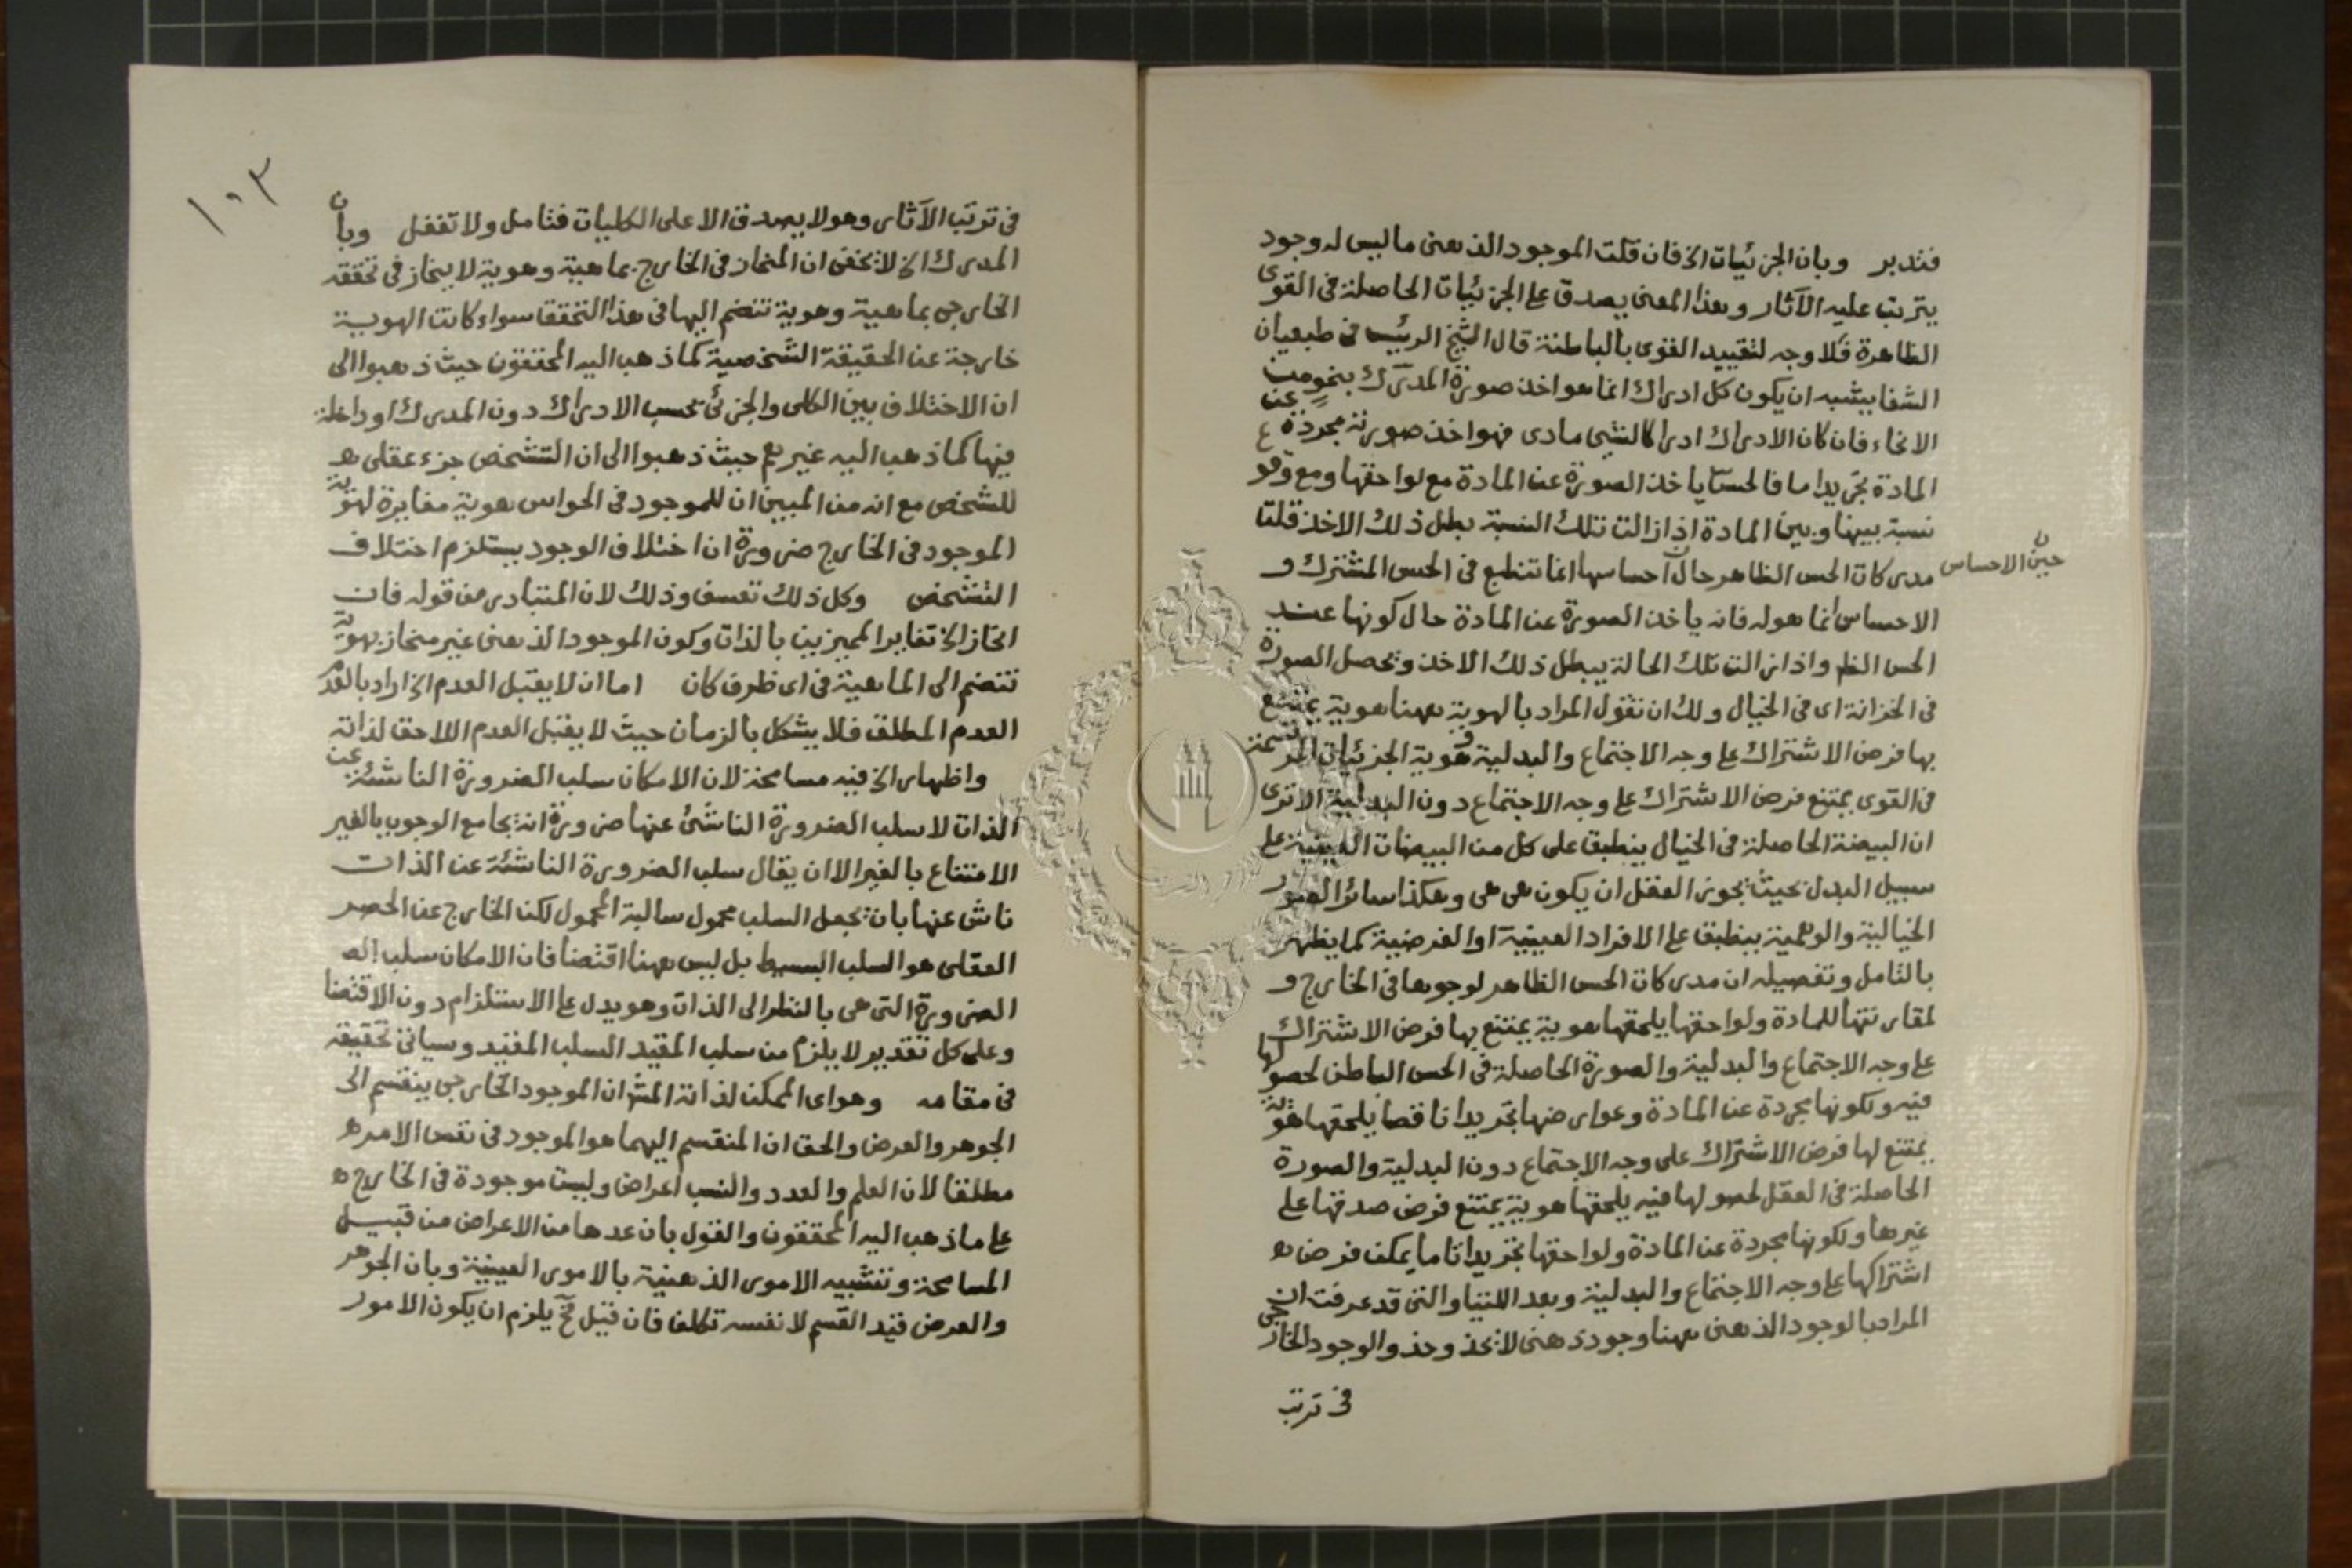 فتدبر وبان الجزئيات الخ فان قلت الموجود الذهنى ما ليس له وجود
يترتب عليه الآثار وبهذا المعنى يصدق على الجزئيات الحاصلة فى القوى
الظاهرة فلا وجه لتقييد القوى بالباطنة قال الشيخ الرئيس فى طبعيات
الشفا يشبه ان يكون كل ادراك انما هو اخذ صورة المدرك بنحو من
الانحاء فان كان الادراك ادراكا لشيى مادى فهو اخذ صورته مجردة عن
المادة تجريدا ما فالحس يأخذ الصورة عن المادة مع لواحقها ومع وقو
نسبة بينها وبين المادة اذا زالت تلك النسبة بطل ذلك الاخذ قلت
مدركات الحس الظاهر حال احساسها انما تنطبع فى الحس المشترك و
حين الاحساس
الاحساس انما هو له فانه يأخذ الصورة عن المادة حال كونها عند
الحس الظ واذا زالت تلك الحالة يبطل ذلك الاخذ وتحصل الصورة
فى الخزانة اى فى الخيال ولك ان تقول المراد بالهوية ههنا هوية يمتنع
بها فرض الاشتراك على وجه الاجتماع والبدلية وهوية الجزئيات المرتسمة
فى القوى يمتنع فرض الاشتراك على وجه الاجتماع دون البدلية الا ترى
ان البيضة الحاصلة فى الخيال ينطبق على كل من البيضات العينية على
سبيل البدل بحيث يجوز العقل ان يكون هى هى وهكذا سائر الصور
الخيالية والوهمية ينطبق على الافراد العينية او الفرضية كما يظهر
بالتامل وتفصيله ان مدركات الحس الظاهر لوجودها فى الخارج و
لمقارنتها للمادة ولواحقها يلحقها هوية يمتنع بها فرض الاشتراك
على وجه الاجتماع والبدلية والصورة الحاصلة فى الحس الباطن لحصولها
فيه ولكونها مجردة عن المادة وعوارضها تجريدا ناقصا يلحقها هوية
يمتنع لها فرض الاشتراك على وجه الاجتماع دون البدلية والصورة
الحاصلة فى العقل لحصولها فيه يلحقها هوية يمتنع فرض صدقها على
غيرها ولكونها مجردة عن المادة ولواحقها تجريدا تاما يمكن فرض
اشتراكها على وجه الاجتماع والبدلية وبعد اللتيا والتى قد عرفت ان
المراد بالوجود الذهنى ههنا وجود ذهنى لا يحذو حذو الوجود الخارجى
فى ترتب
١٠٣
فى ترتب الآثار وهو لا يصدق الا على الكليات فتامل ولا تغفل وبان
المدرك الخ لا يخفى ان المنحاز فى الخارج بماهية وهوية لا ينحاز فى تحققه
الخارجى بماهية وهوية تنضم اليها فى هذا التحقق سواء كانت الهوية
خارجة عن الحقيقة الشخصية كما ذهب اليه المحققون حيث ذهبوا الى
ان الاختلاف بين الكلى والجزئ بحسب الادراك دون المدرك او داخلة
فيها كما ذهب اليه غيرهم حيث ذهبوا الى ان التشخص جزء عقلى
للشخص مع انه من المبين ان للموجود فى الحواس هوية مغايرة لهوية
الموجود فى الخارج ضرورة ان اختلاف الوجود يستلزم اختلاف
التشخص وكل ذلك تعسف وذلك لان المتبادر من قوله فان
انحاز الخ تغاير المميزين بالذات وكون الموجود الذهنى غير منحاز بهوية
تنضم الى الماهية فى اى ظرف كان اما ان لا يقبل العدم الخ اراد بالعدم
العدم المطلق فلا يشكل بالزمان حيث لا يقبل العدم اللاحق لذاته
واظهار الخ فيه مسامحة لان الامكان سلب الضرورة الناشئة عن
الذات لا سلب الضرورة الناشئ عنها ضرورة انه يجامع الوجوب بالغير
الامتناع بالغير الا ان يقال سلب الضرورة الناشئة عن الذات
ناش عنها بان يجعل السلب محمول سالبة المحمول لكن الخارج عن الحصر
العقلى هو السلب البسيط بل ليس ههنا اقتضا فان الامكان سلب
الضرورة التى هى بالنظر الى الذات وهو يدل على الاستلزام دون الاقتضا
وعلى كل تقدير لا يلزم من سلب المقيد السلب المقيد وسياتى تحقيقه
فى مقامه وهو اى الممكن لذاته المش ان الموجود الخارجى ينقسم الى
الجوهر والعرض والحق ان المنقسم اليهما هو الموجود فى نفس الامر
مطلقا لان العلم والعدد والنسب اعراض وليست موجودة فى الخارج
على ما ذهب اليه المحققون والقول بان عدها من الاعراض من قبيل
المسامحة وتشبيه الامور الذهنية بالامور العينية وبان الجوهر
والعرض قيد القسم لا نفسه تكلف فان قيل فح يلزم ان يكون الامور